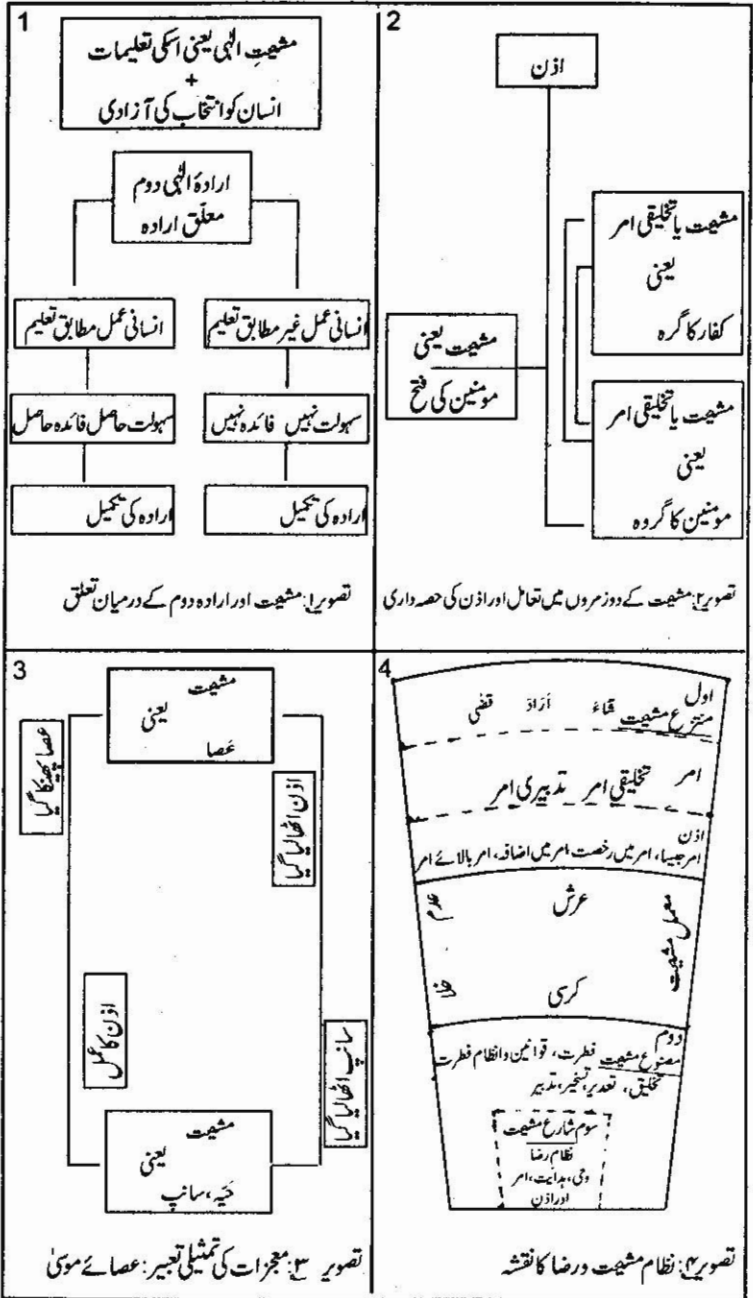 1
مشیتِ الٰہی یعنی اسکی تعلیمات
+
انسان کو انتخاب کی آزادی
ارادۂ الٰہی دوم
معلّق ارادہ
انسانی عمل غیر مطابق تعلیم
انسانی عمل مطابق تعلیم
سہولت نہیں فائدہ نہیں
سہولت حاصل فائدہ حاصل
ارادہ کی تکمیل
ارادہ کی تکمیل
تصویر۱: مشیت اور ارادہ دوم کے درمیان تعلق
2
اذن
مشیت یا تخلیقی امر
یعنی
کفار کا گرہ
مشیت یعنی
مومنین کی فتح
مشیت یا تخلیقی امر
یعنی
مومنین کا گروہ
تصویر۲: مشیت کے دو زمروں میں تعامل اور اذن کی حصہ داری
3
مشیت
یعنی
عَصا
عصا پھینکا گیا
اذن اٹھا لیا گیا
اذن کا عمل
سانپ اٹھا لیا گیا
مشیت
یعنی
حَیّہ، سانپ
تصویر ۳: معجزات کی تمثیلی تعبیر: عصائے موسیٰ
4
اول
منتزع مشیت شاءَ اَرَادَ قضی
امر تخلیقی امر تدبیری امر
اذن
امر جیسا، امر میں رخصت، امر میں اضافہ، امر بالائے امر
معمل مشیت
عرش
کرسی
خلا
دوم
مصنوع مشیت فطرت، قوانین و انظام فطرت
تخلیق، تقدیر، تسخیر، تدبیر
سوم شارع مشیت
نظام رضا
وحی، ہدایت، امر
اور اذن
تصویر۴: نظام مشیت و رضا کا نقشہ